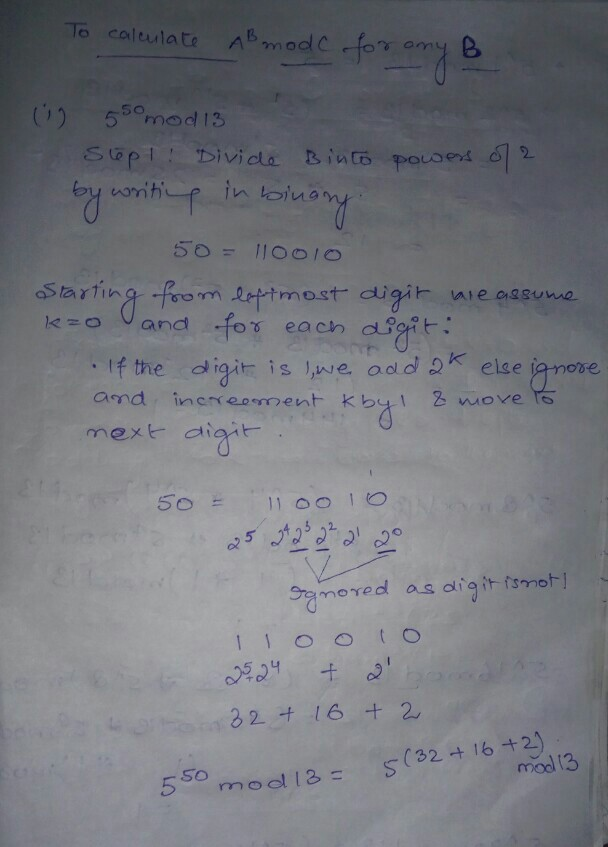 To calculate A^B mod C for any B
(i) 5^50 mod 13
Step 1: Divide B into powers of 2
by writing in binary.
50 = 110010
Starting from leftmost digit we assume
k=0 and for each digit:
· If the digit is 1, we add 2^k else ignore
and increement k by 1 & move to
next digit.
50 = 110010
2^5 2^4 2^3 2^2 2^1 2^0
Ignored as digit is not 1
1 1 0 0 1 0
2^5+2^4 + 2^1
32 + 16 + 2
5^50 mod 13 = 5^(32+16+2) mod 13